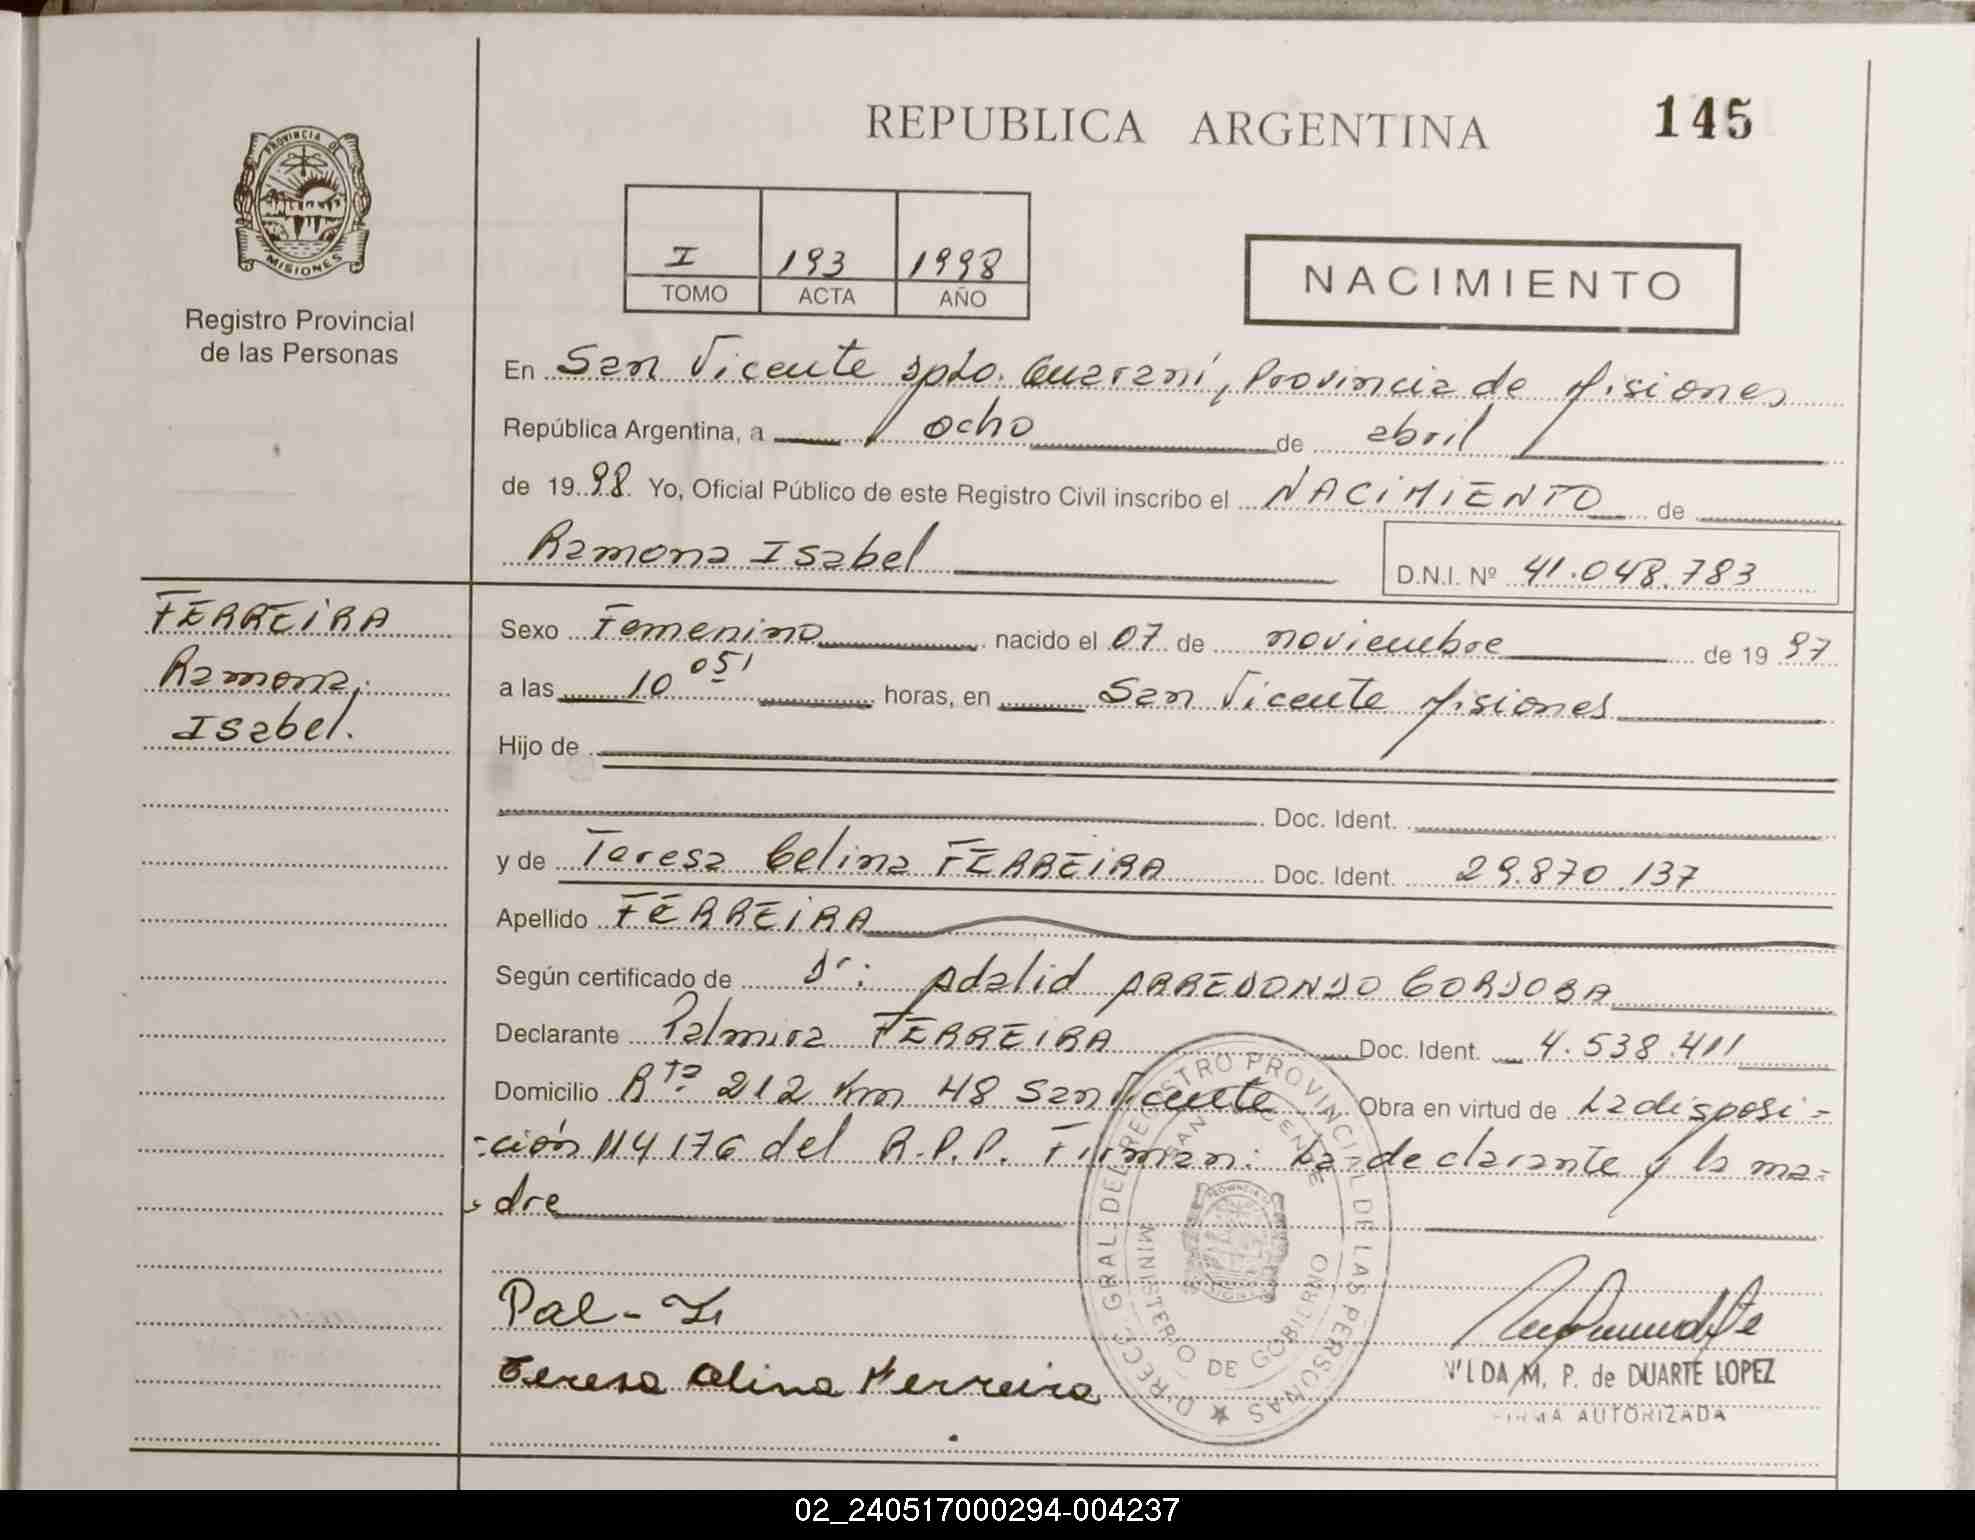 REPUBLICA ARGENTINA
145
PROVINCIA DE
MISIONES
Registro Provincial
de las Personas
I 193 1998
TOMO ACTA AÑO
NACIMIENTO
En San Vicente Dpto. Guaraní, Provincia de Misiones
República Argentina, a ocho de abril
de 1998. Yo, Oficial Público de este Registro Civil inscribo el NACIMIENTO de
Ramona Isabel D.N.I. Nº 41.048.783
FERREIRA
Ramona
Isabel.
Sexo Femenino nacido el 07 de noviembre de 1997
a las 10 05' horas, en San Vicente Misiones
Hijo de
Doc. Ident.
y de Teresa Celina FERREIRA Doc. Ident. 29.870.137
Apellido FERREIRA
Según certificado de Dr: Adalid ARREDONDO CORDOBA
Declarante Palmira FERREIRA Doc. Ident. 4.538.411
Domicilio Rta 212 Km 48 San Vicente Obra en virtud de La disposi=
=ción 114176 del R.P.P. Firman: La declarante y la ma=
=dre
Pal-
Teresa Celina Ferreira
DIRECC. GRAL. DEL REGISTRO PROVINCIAL DE LAS PERSONAS
SAN VICENTE
MINISTERIO DE GOBIERNO
NILDA M. P. de DUARTE LOPEZ
FIRMA AUTORIZADA
02_240517000294-004237